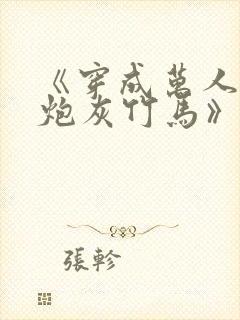 《穿成萬人
炮灰竹馬》
張軫